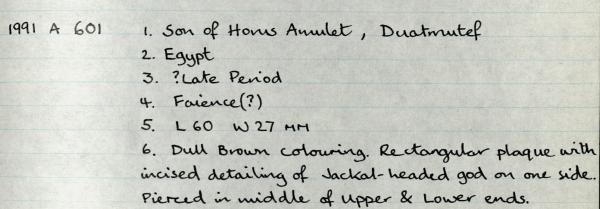 1991 A 601 1. Son of Horus Amulet, Duatmutef
2. Egypt
3. ?Late Period
4. Faience(?)
5. L 60 W 27 MM
6. Dull Brown colouring. Rectangular plaque with
incised detailing of Jackal-headed god on one side.
Pierced in middle of Upper & Lower ends.